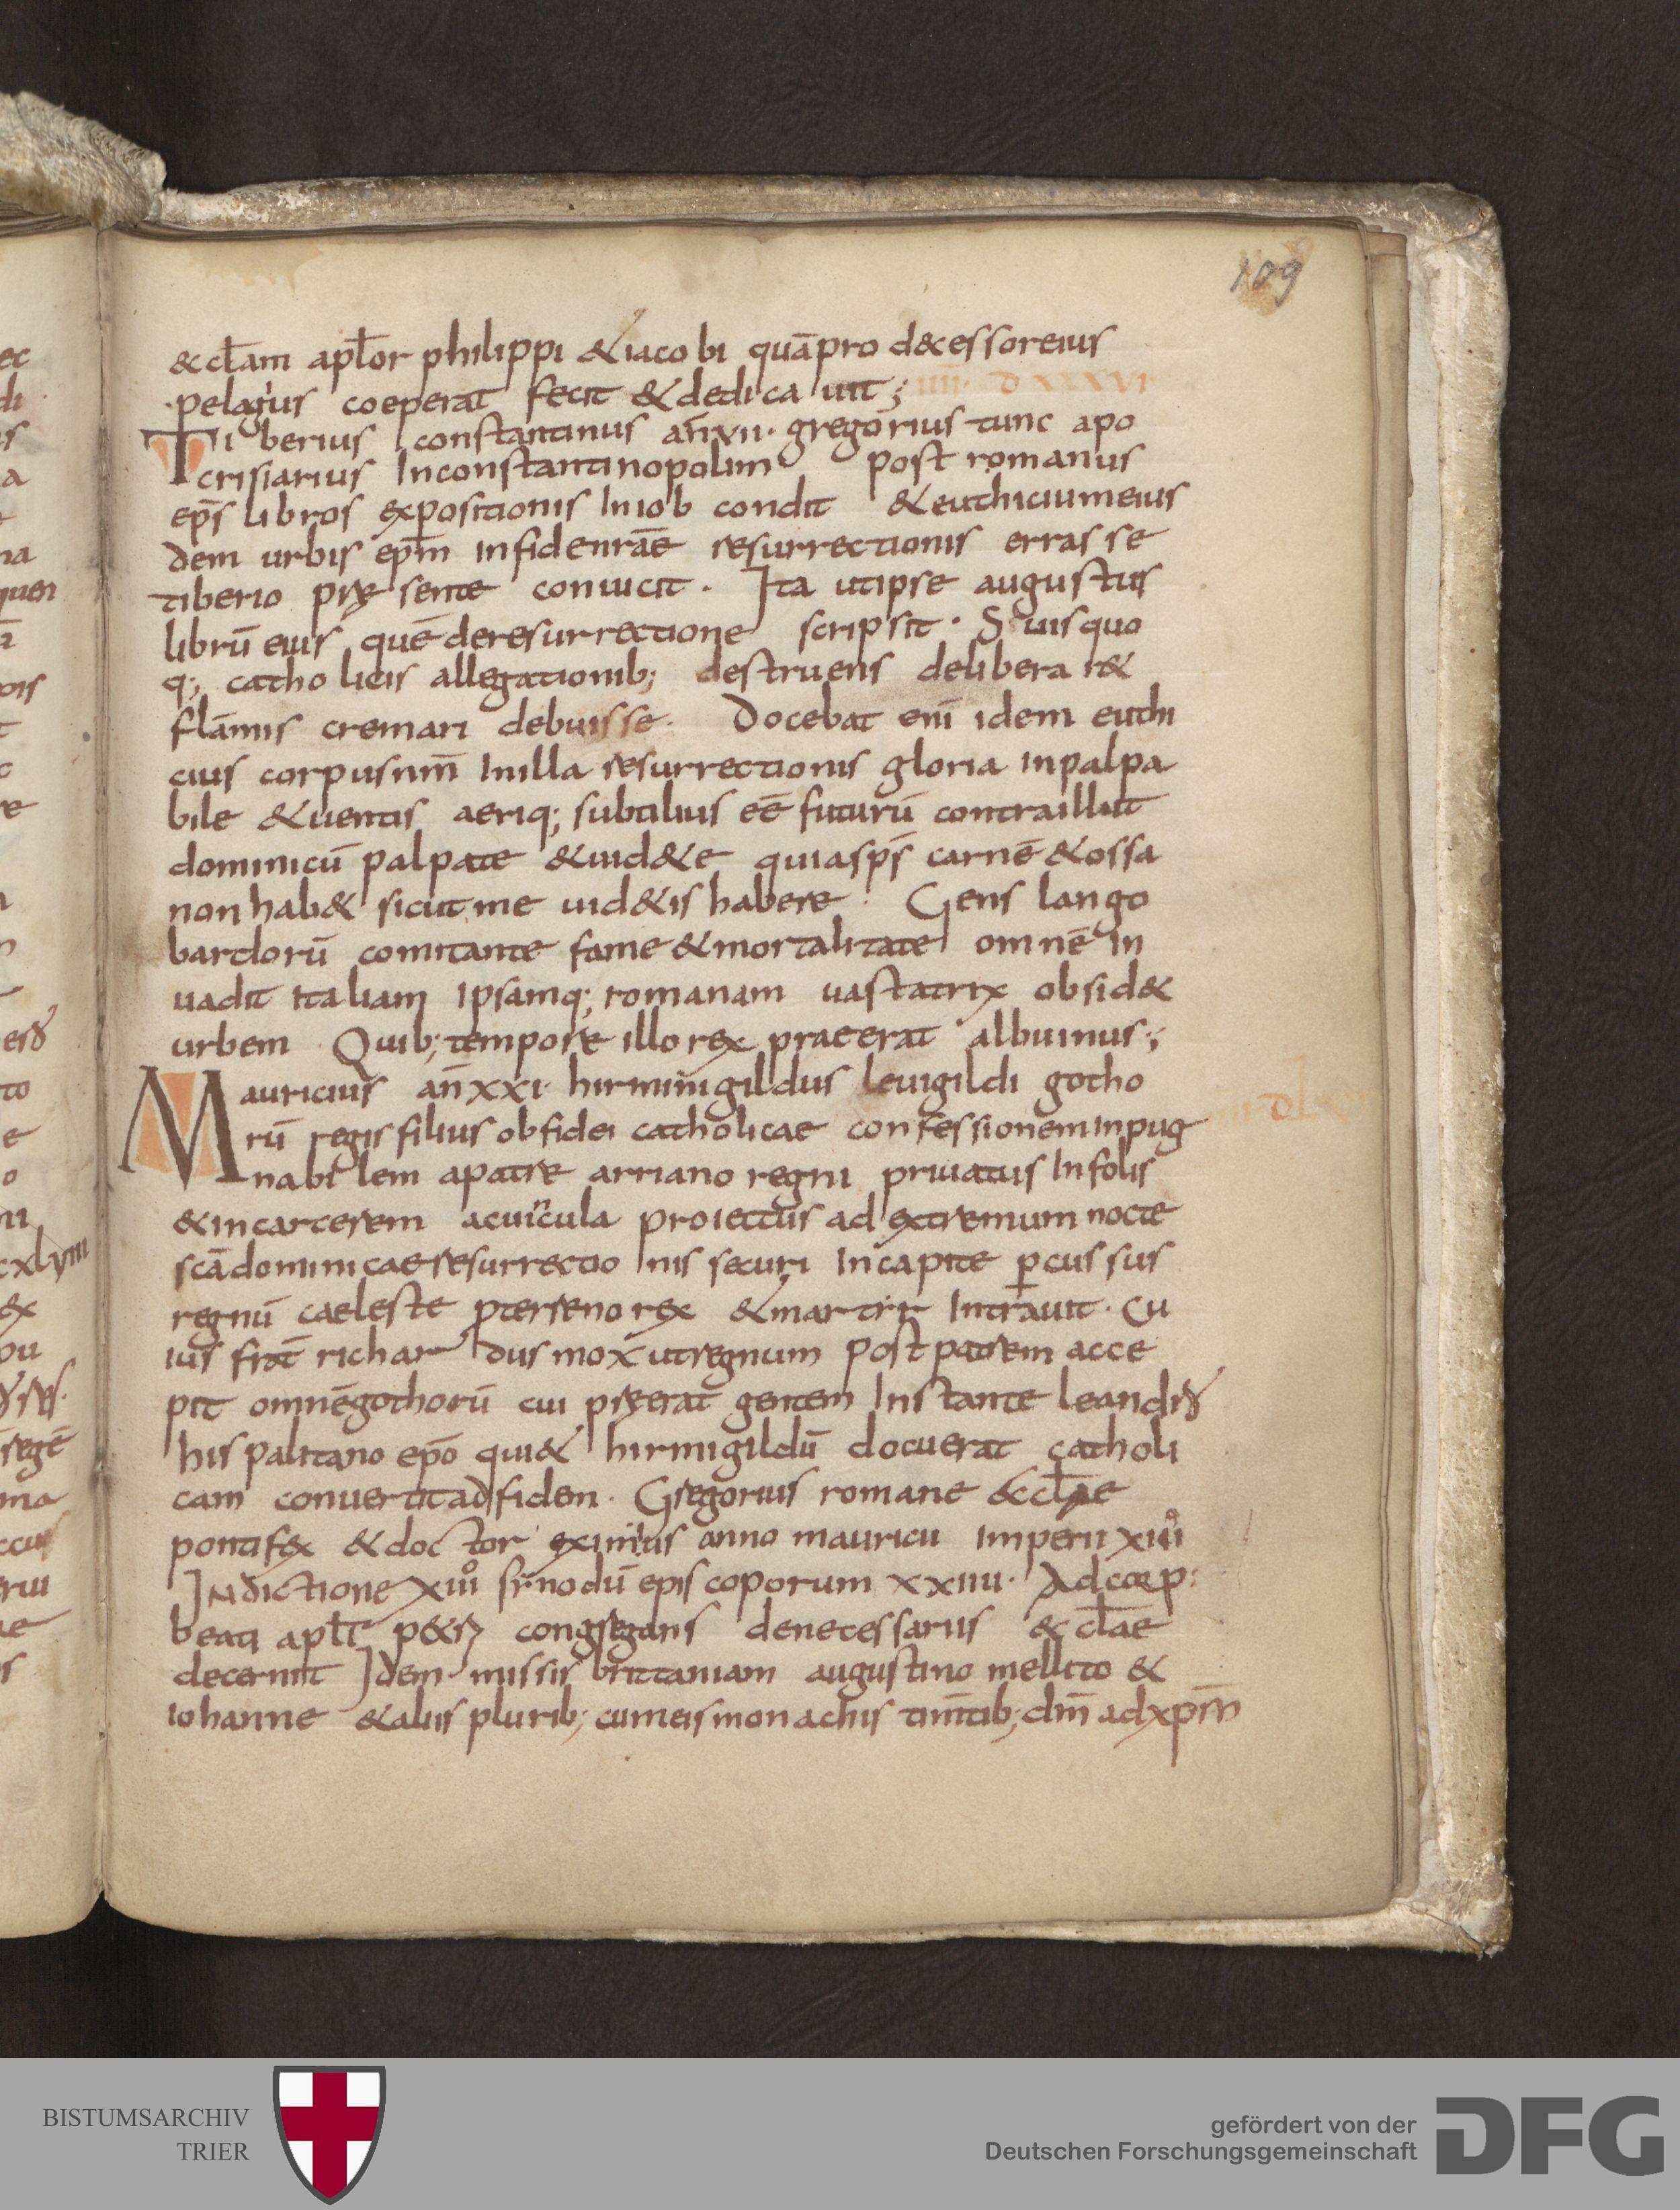 109
&cl̄am apl̄or philippi &iacobi quā pro d&essor eius
pelagius coeperat fecit & dedicauit; IIII DXXXVI
Tiberius constantinus an̄ VII. gregorius tunc apo
crisiarius In constantinopolim post romanus
ep̄s libros expositionis In iob condit & euthicium eius
dem urbis ep̄m in fide nr̄ae resurrectionis errasse
tiberio pręsente conuicit. Ita ut ipse augustus
librū eius quē de resurrectione scripsit. Suis quo
q; catholicis allegationib; destruens deliberar&
flāmis cremari debuisse. Docebat enī idem euthi
cius corpus nrm̄ In illa resurrectionis gloria inpalpa
bile & uentis aeriq; subtilius eē futurū contra illut
dominicū palpate & uid&e quia sp̄s carnē & ossa
non hab& sicut me uid&is habere. Gens lango
bardorū comitante fame & mortalitate omnē in
uadit italiam ipsamq; romanam uastatrix obsid&
urbem Quib; tempore illo rex praeerat albuinus;
Mauricius an̄ XXI. hirminigildus leuigildi gotho
rū regis filius ob fidei catholicae confessionem inpug
nabilem a patre arriano regni priuatus In folis
& in carcerem a cuincula proiectus ad extremum nocte
scā dominicae resurrectionis securi In capite ꝑcussus
regnū caeleste pterreno rex & martir Intrauit. Cu
ius frat̄ richardus mox ut regnum post patrem acce
pit omnē gothorū cui pręerat gentem Instante leandro
hispalitano ep̄o qui & hirmigildū docuerat catholi
cam conuertit ad fidem. Gregorius romane &cl̄ae
pontifex & doctor eximius anno mauricii imperii XIIIo
Indictione XIIIo synodū episcoporum XXIIII. Ad corp:
beati apl̄i p&ri congregans de necessariis &cl̄ae
decernit Idem missis brittaniam augustino mellito &
iohanne & aliis plurib; cum eis monachis tim̄tib; dm̄ ad xpm̄
BISTUMSARCHIV
TRIER
gefördert von der
Deutschen Forschungsgemeinschaft
DFG